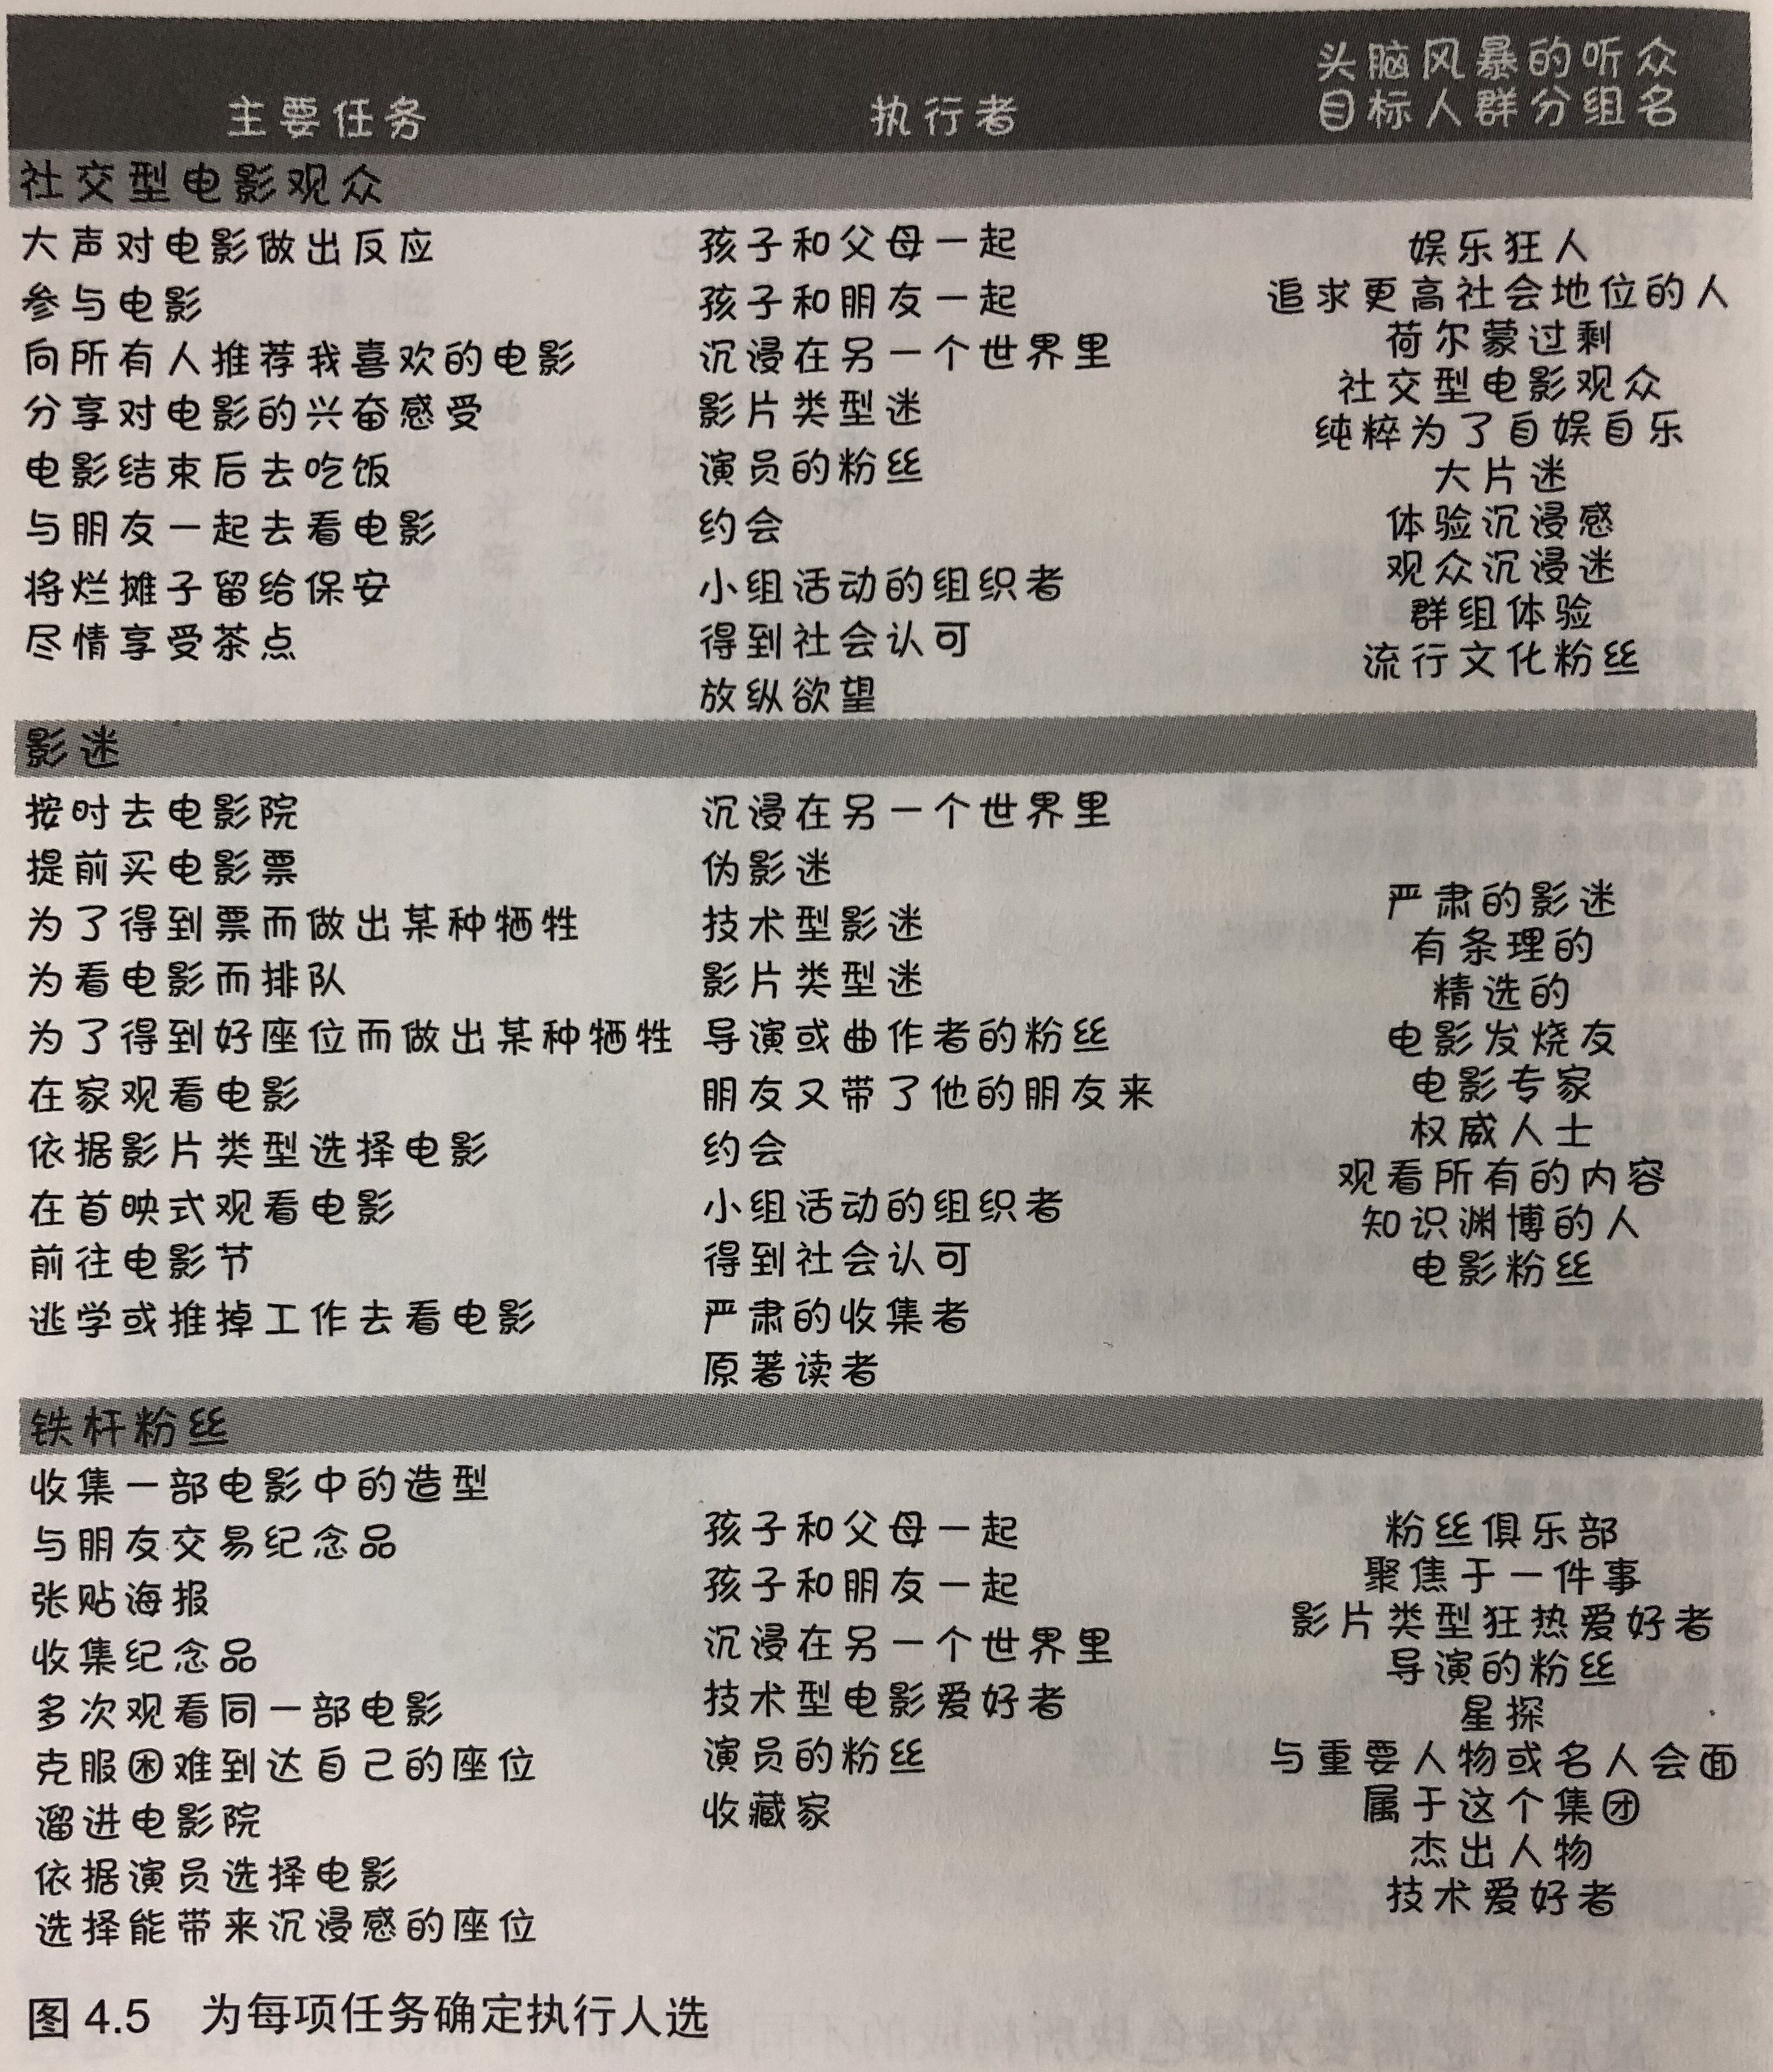 头脑风暴的听众
主要任务 执行者 目标人群分组名
社交型电影观众
大声对电影做出反应
参与电影
向所有人推荐我喜欢的电影
分享对电影的兴奋感受
电影结束后去吃饭
与朋友一起去看电影
将烂摊子留给保安
尽情享受茶点
孩子和父母一起
孩子和朋友一起
沉浸在另一个世界里
影片类型迷
演员的粉丝
约会
小组活动的组织者
得到社会认可
放纵欲望
娱乐狂人
追求更高社会地位的人
荷尔蒙过剩
社交型电影观众
纯粹为了自娱自乐
大片迷
体验沉浸感
观众沉浸迷
群组体验
流行文化粉丝
影迷
按时去电影院
提前买电影票
为了得到票而做出某种牺牲
为看电影而排队
为了得到好座位而做出某种牺牲
在家观看电影
依据影片类型选择电影
在首映式观看电影
前往电影节
逃学或推掉工作去看电影
沉浸在另一个世界里
伪影迷
技术型影迷
影片类型迷
导演或曲作者的粉丝
朋友又带了他的朋友来
约会
小组活动的组织者
得到社会认可
严肃的收集者
原著读者
严肃的影迷
有条理的
精选的
电影发烧友
电影专家
权威人士
观看所有的内容
知识渊博的人
电影粉丝
铁杆粉丝
收集一部电影中的造型
与朋友交易纪念品
张贴海报
收集纪念品
多次观看同一部电影
克服困难到达自己的座位
溜进电影院
依据演员选择电影
选择能带来沉浸感的座位
孩子和父母一起
孩子和朋友一起
沉浸在另一个世界里
技术型电影爱好者
演员的粉丝
收藏家
粉丝俱乐部
聚焦于一件事
影片类型狂热爱好者
导演的粉丝
星探
与重要人物或名人会面
属于这个集团
杰出人物
技术爱好者
图 4.5 为每项任务确定执行人选